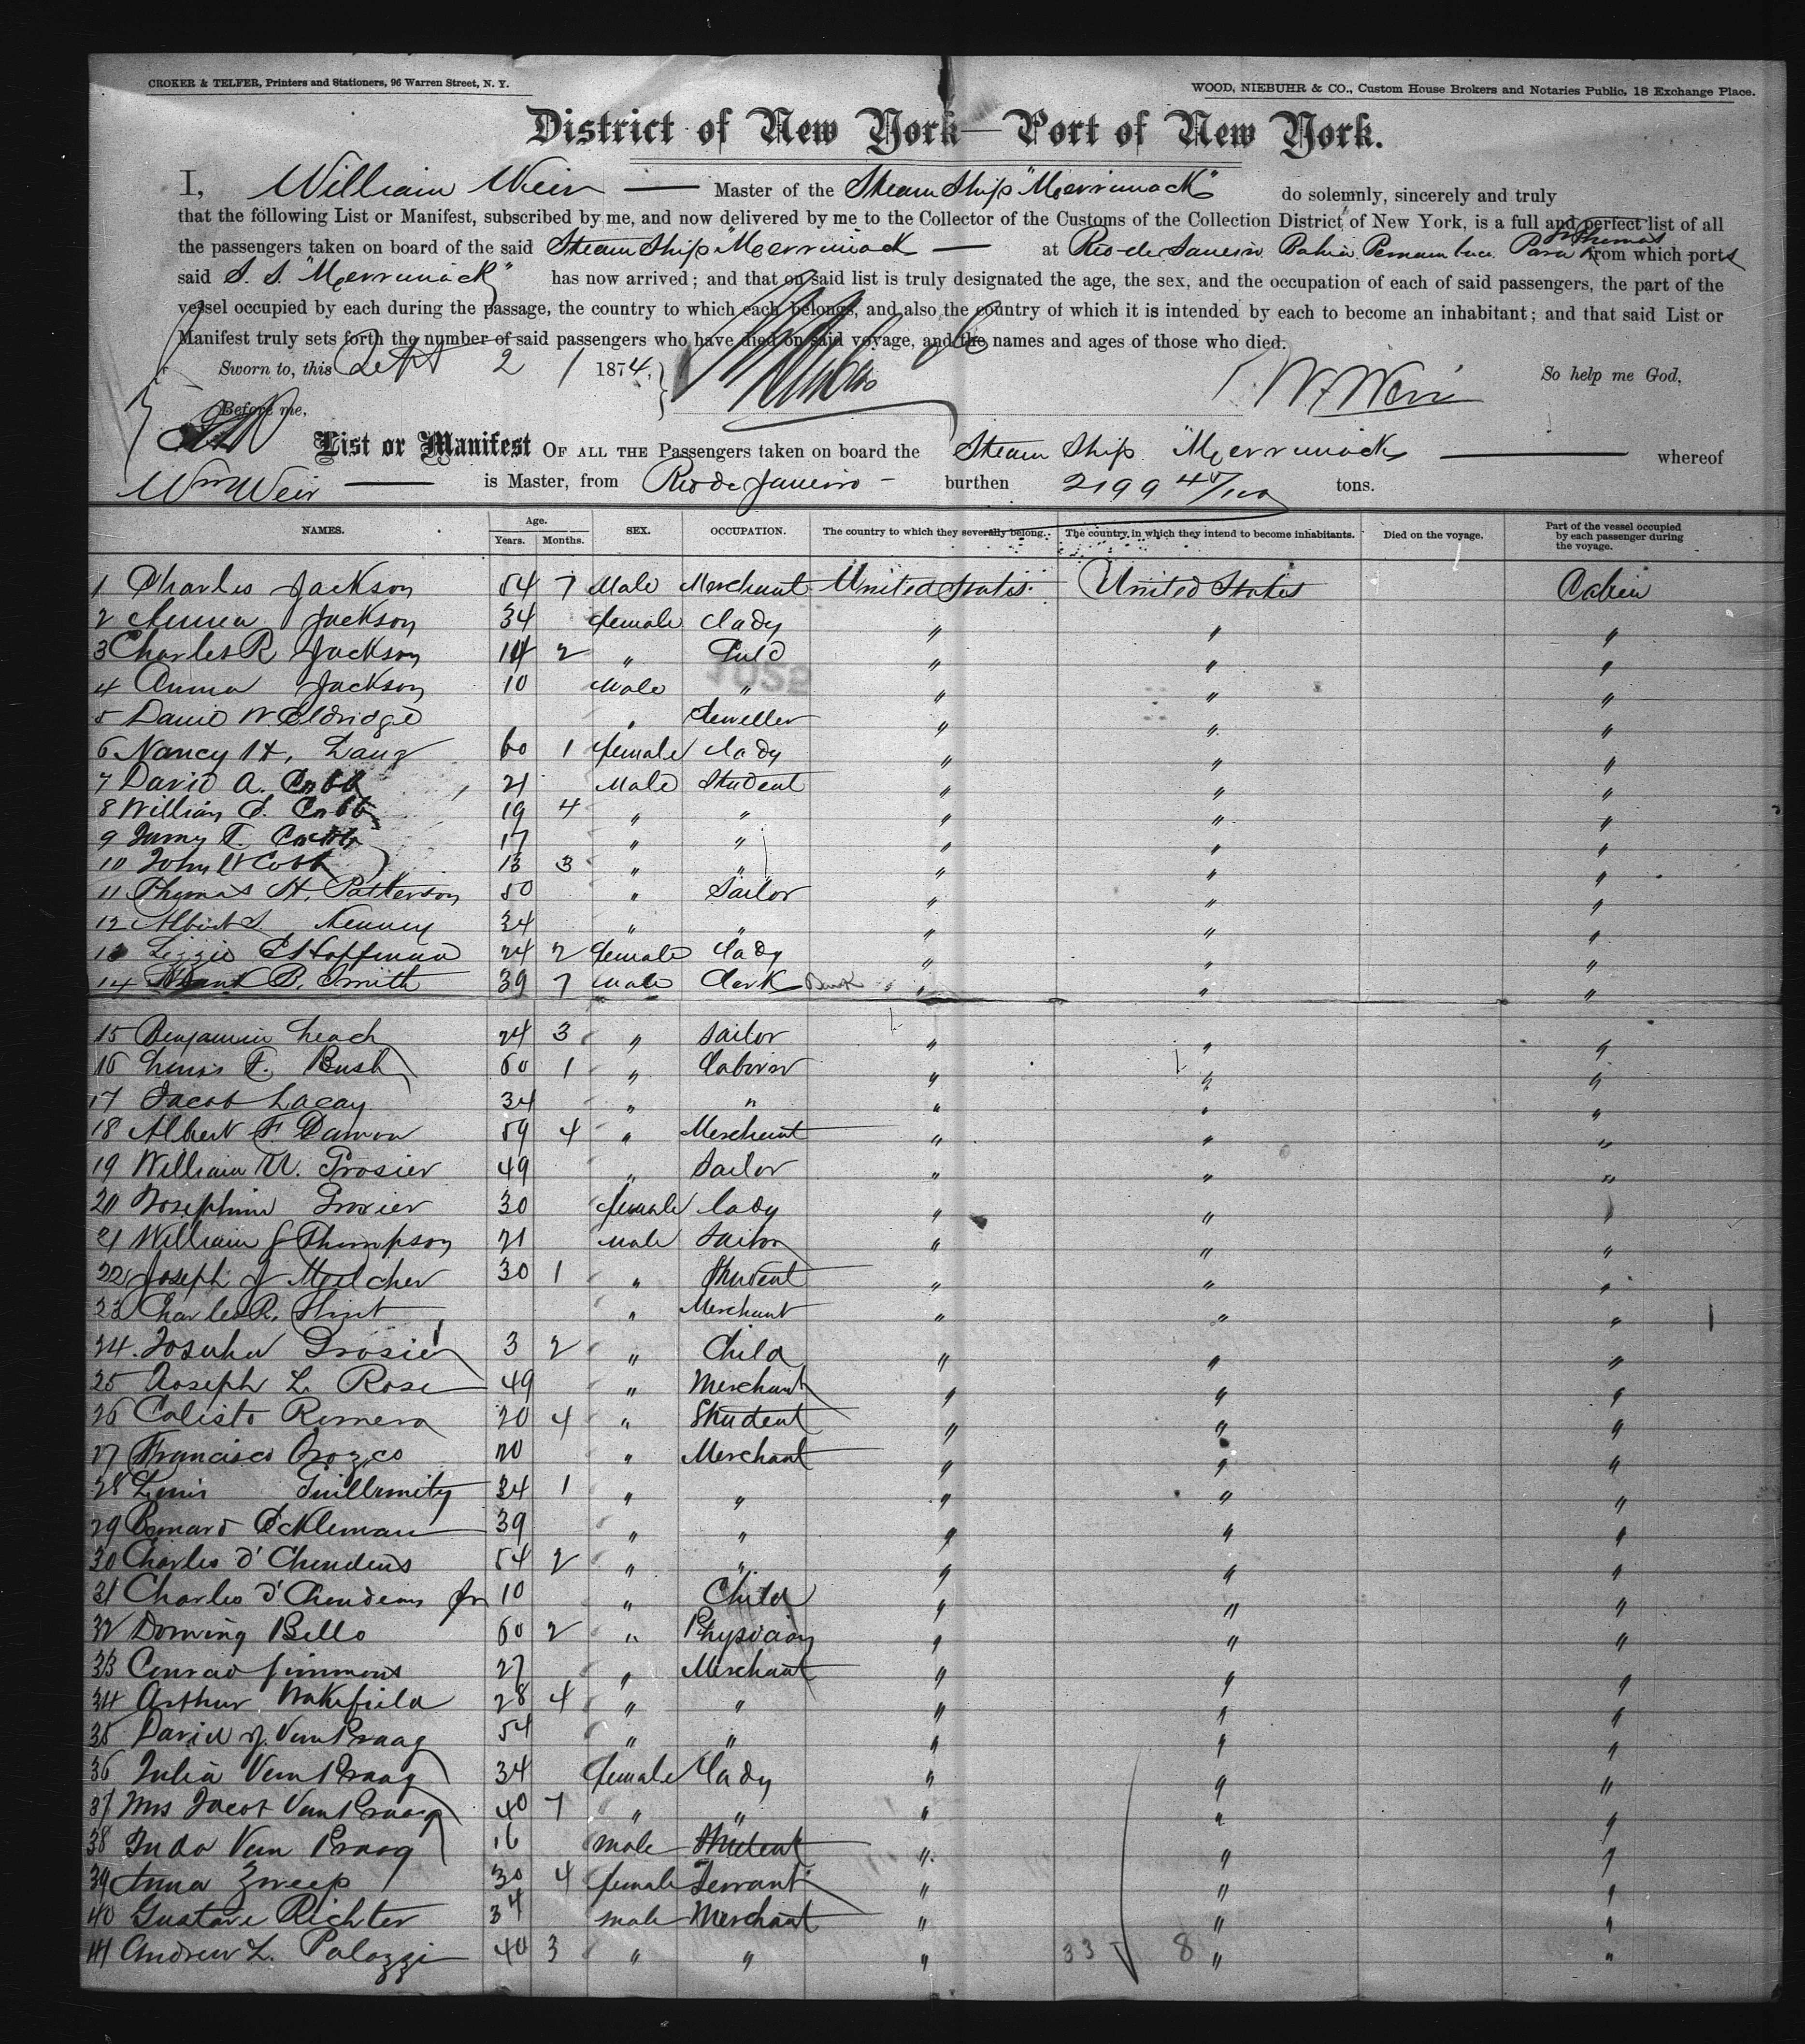 CROKER & TELFER, Printers and Stationers, 96 Warren Street, N. Y.
WOOD, NIEBUHR & CO., Custom House Brokers and Notaries Public, 18 Exchange Place.
District of New York—Port of New York.
I, William Weir — Master of the Steam Ship "Merrimack" do solemnly, sincerely and truly
that the following List or Manifest, subscribed by me, and now delivered by me to the Collector of the Customs of the Collection District of New York, is a full and perfect list of all
the passengers taken on board of the said Steam Ship "Merrimack — at Rio de Janeiro Bahia Pernambuco Para St Thomas from which ports
said S. S. "Merrimack" has now arrived; and that on said list is truly designated the age, the sex, and the occupation of each of said passengers, the part of the
vessel occupied by each during the passage, the country to which each belongs, and also the country of which it is intended by each to become an inhabitant; and that said List or
Manifest truly sets forth the number of said passengers who have died on said voyage, and the names and ages of those who died.
Sworn to, this Sept 21 1874, W. Weir So help me God,
Before me,
List or Manifest OF ALL THE Passengers taken on board the Steam Ship "Merrimack — whereof
Wm Weir — is Master, from Rio de Janeiro — burthen 2199 45/100 tons.
NAMES. Age. Years. Months. SEX. OCCUPATION. The country to which they severally belong. The country in which they intend to become inhabitants. Died on the voyage. Part of the vessel occupied by each passenger during the voyage.
1 Charles Jackson 54 7 Male Merchant United States United States Cabin
2 Anna Jackson 34 female Lady " " "
3 Charles R Jackson 14 2 " Child " " "
1022
4 Anna Jackson 10 Male " " " "
5 David W. Eldridge " Jeweller " " "
6 Nancy H, Lang 60 1 female lady " " "
7 David A. Cobb 21 Male Student " " "
8 William E. Cobb 19 4 " " " " "
9 T. Cobb 17 " " " " "
10 John W Cobb 13 3 " " " " "
11 Thomas H. Patterson 50 " Sailor " " "
12 Albert S. Kenney 34 " " " " "
13 Lizzie E Hoffman 24 2 female Lady " " "
14 Frank B. Smith 39 7 male Clerk " " "
15 Benjamin Leach 24 3 " Sailor " " "
16 Lewis F. Bush 60 1 " Laborer " " "
17 Jacob Lacay 34 " " " " "
18 Albert F. Damon 59 4 " Merchant " " "
19 William U. Grosier 49 " Sailor " " "
20 Josephine Grosier 30 female lady " " "
21 William J Thompson 21 male Sailor " " "
22 Joseph J Melcher 30 1 " Student " " "
23 Charles R. Flint " Merchant " " "
24 Grosier 3 2 " Child " " "
25 Joseph L. Rose 49 " Merchant " " "
26 Calisto Romera 20 4 " Student " " "
27 Francisco Orozco 20 " Merchant " " "
28 Louis 34 1 " " " " "
29 Bernard Eckleman 39 " " " " "
30 Charles d' Chendens 54 2 " " " " "
31 Charles d' Chendens Jr 10 " Child " " "
32 Doming Bello 60 2 " Physician " " "
33 Conrad Simmons 27 " Merchant " " "
34 Arthur Wakefield 28 4 " " " " "
35 David J. Van Praag 54 " " " " "
36 Julia Van Praag 34 female Lady " " "
37 Mrs Jacob Van Praag 40 7 " " " " "
38 Juda Van Praag 16 male Student " " "
39 Anna Zweep 30 4 female Servant " " "
40 Gustave Richter 34 male Merchant " " "
41 Andrew L. Palazzi 40 3 " " " 33 8 " "